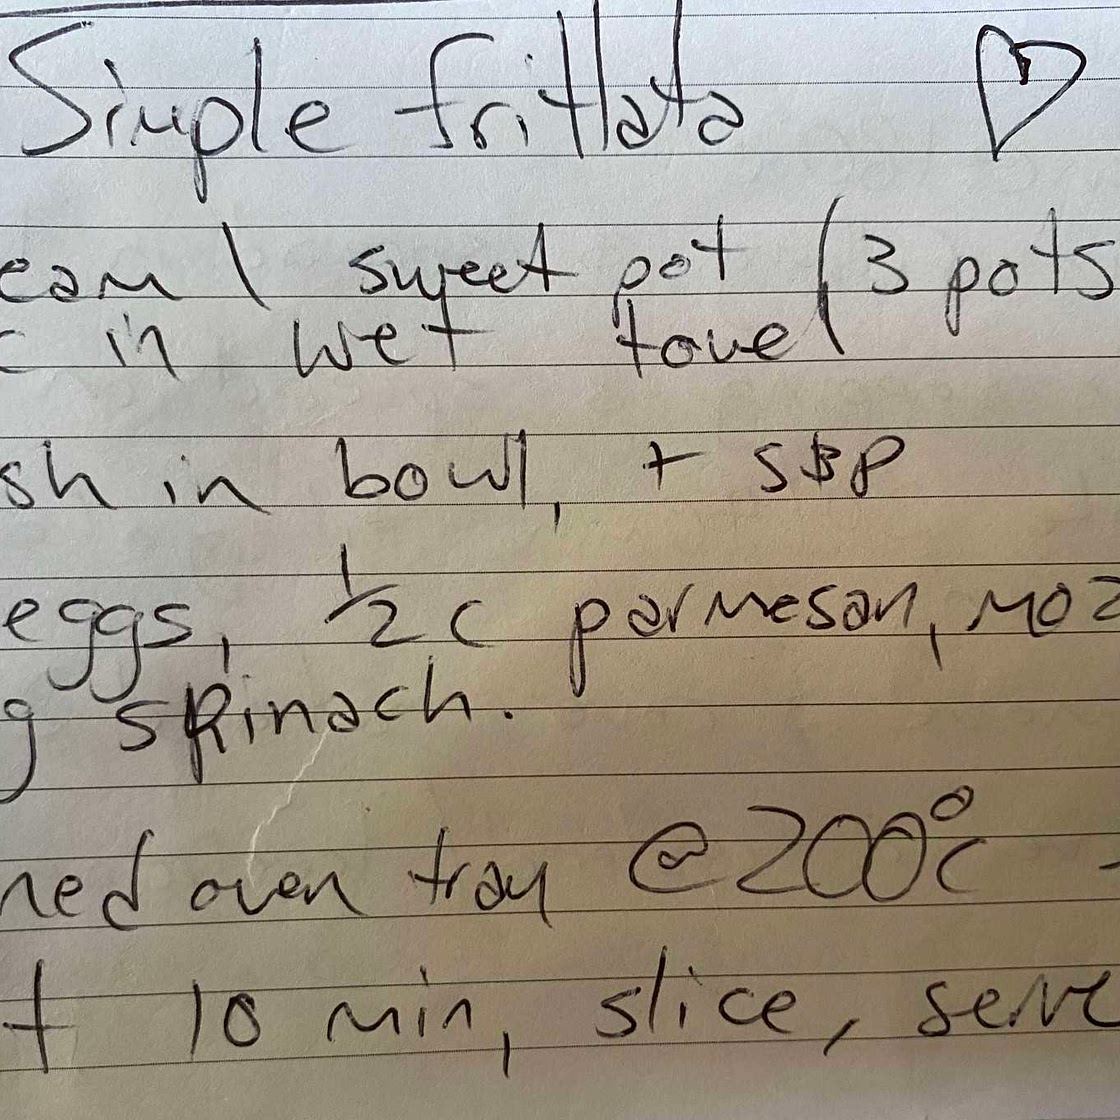 Simple frittata
eam 1 sweet pot (3 pots
c in wet towel
sh in bowl, + S&P
eggs, 1/2 c parmesan, moz
g spinach.
ned oven tray @ 200°C -
t 10 min, slice, serve